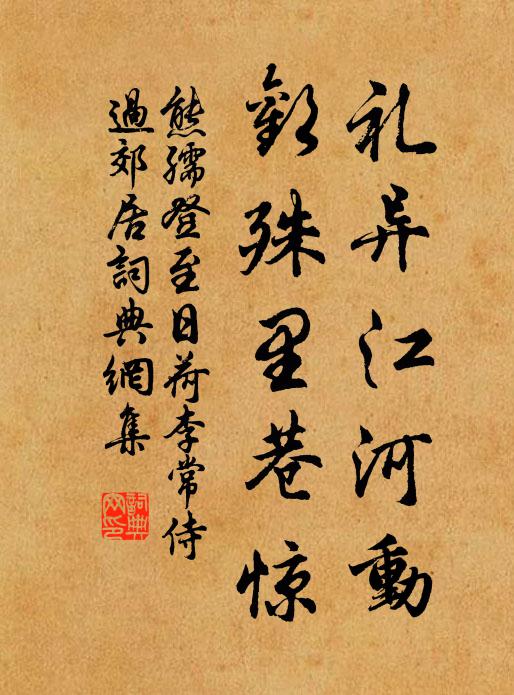 礼异江河動
歡殊里巷惊
熊孺登至日荷李常侍
過郊居詞典網集
詞典網印